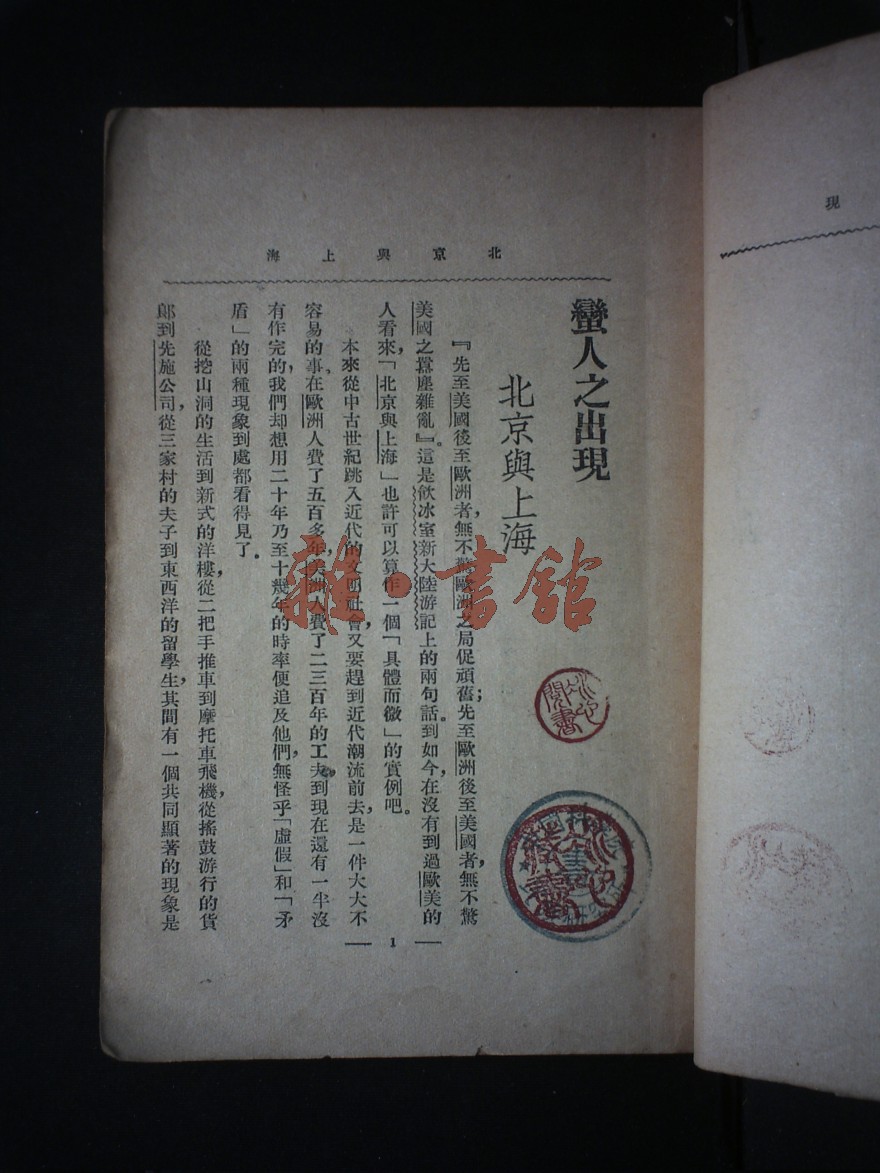 北京與上海
蠻人之出現
北京與上海
『先至美國後至歐洲者，無不驚歐洲之局促頑舊；先至歐洲後至美國者，無不驚
美國之囂塵雜亂』。這是飲冰室新大陸游記上的兩句話。到如今，在沒有到過歐美的
人看來，「北京與上海」也許可以算作一個「具體而微」的實例吧。
本來從中古世紀跳入近代的文明社會，又要趕到近代潮流前去，是一件大大不
容易的事。在歐洲人費了五百多年，美洲人費了二三百年的工夫，到現在還有一半沒
有作完的，我們却想用二十年乃至十幾年的時率便追及他們，無怪乎「虛假」和「矛
盾」的兩種現象到處都看得見了。
從挖山洞的生活到新式的洋樓，從二把手推車到摩托車飛機，從搖鼓游行的貨
郎到先施公司，從三家村的夫子到東西洋的留學生，其間有一個共同顯著的現象是
1
雜·書館
現